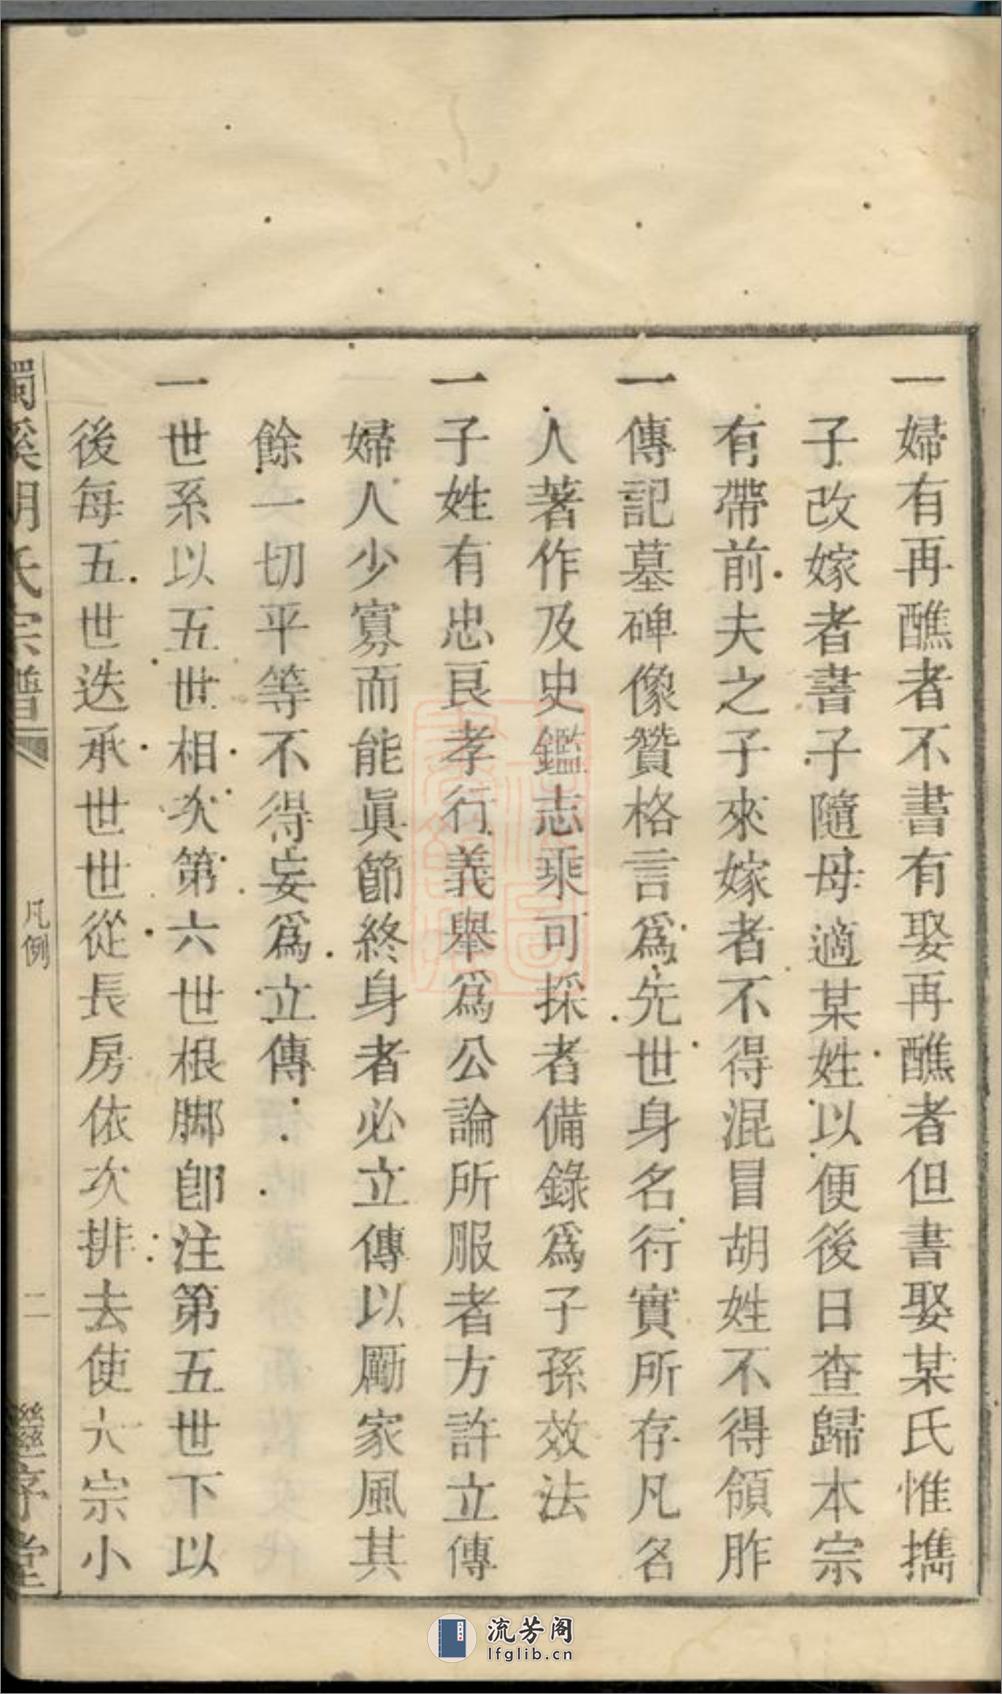 一婦有再醮者不書有娶再醮者但書娶某氏惟攜
子改嫁者書子隨母適某姓以便後日查歸本宗
有帶前夫之子來嫁者不得混冒胡姓不得領胙
一傳記墓碑像贊格言爲先世身名行實所存凡名
人著作及史鑑志乘可採者備錄爲子孫效法
一子姓有忠良孝行義舉爲公論所服者方許立傳
婦人少寡而能眞節終身者必立傳以勵家風其
餘一切平等不得妄爲立傳
一世系以五世相次第六世根脚卽注第五世下以
後每五世迭承世世從長房依次排去使大宗小
溪胡氏宗譜
凡例
二
繼序堂
流芳阁
lfglib.cn